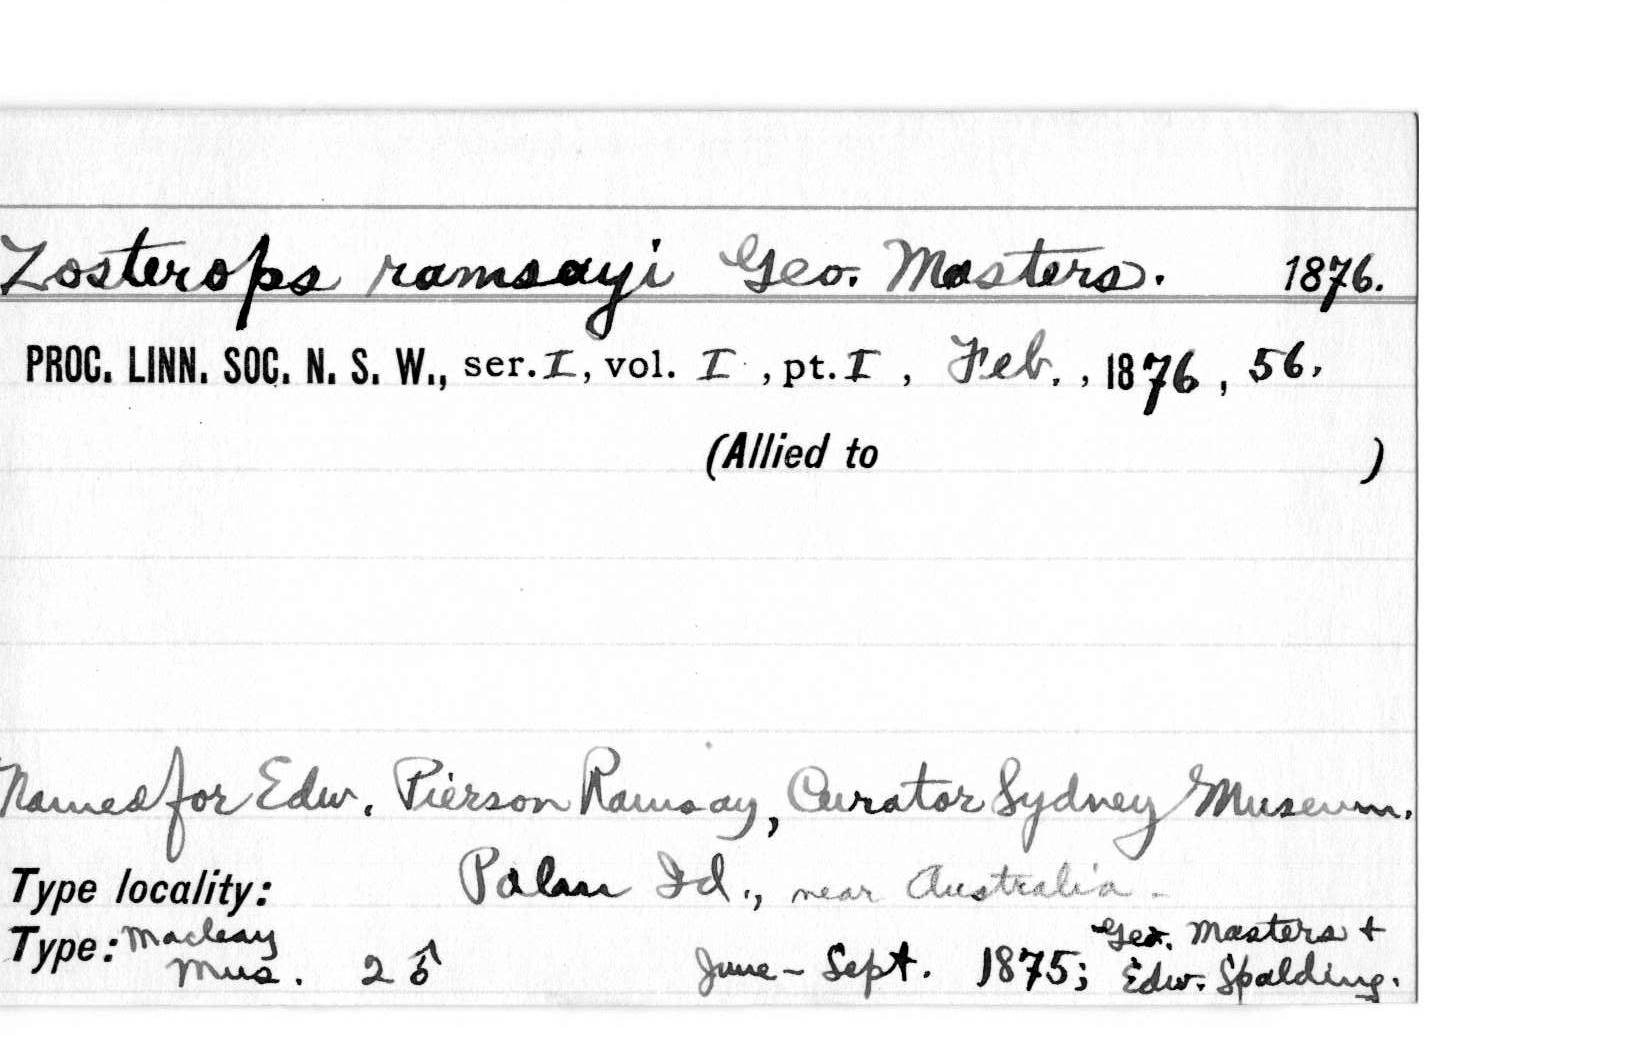 Zosterops ramsayi Geo. Masters. 1876.
PROC. LINN. SOC. N. S. W., ser. I, vol. I, pt. I, Feb., 1876, 56.
(Allied to )
Named for Edw. Pierson Ramsay, Curator Sydney Museum.
Type locality: Palm Id., near Australia.
Type: Macleay Mus. 2 ♂ June - Sept. 1875; Geo. Masters + Edw. Spalding.